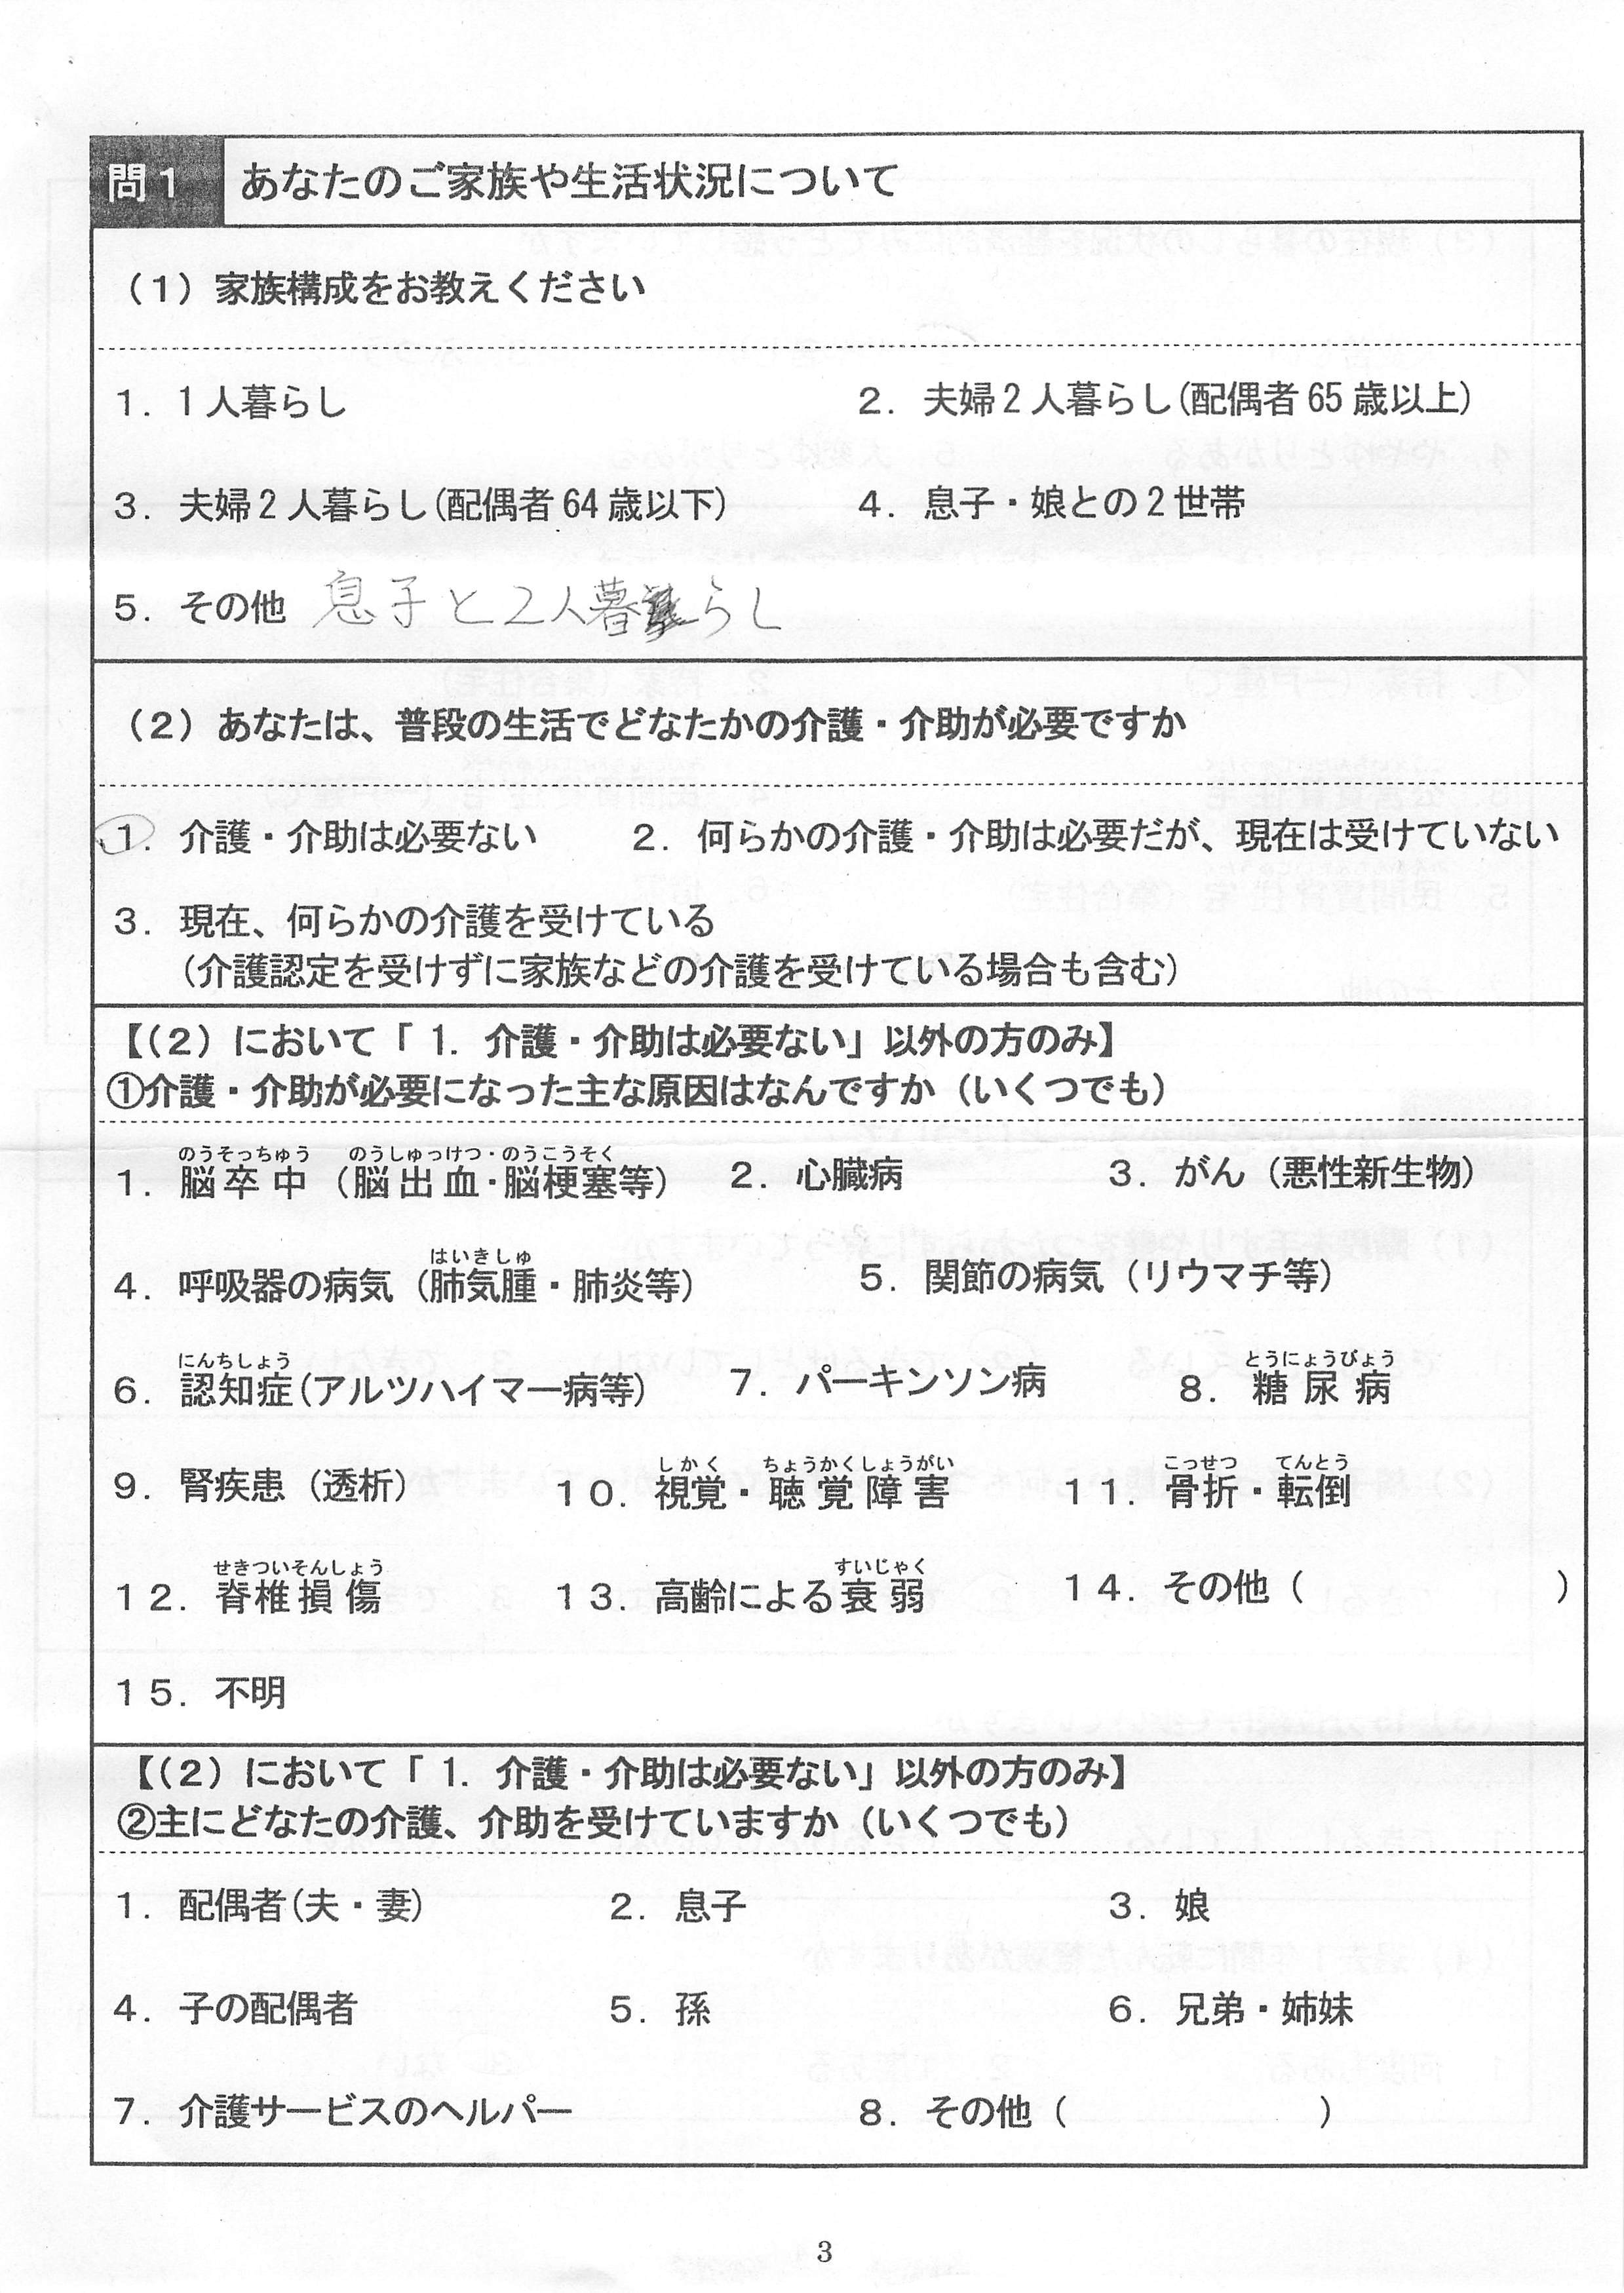 問1 あなたのご家族や生活状況について
（1）家族構成をお教えください
1．1人暮らし 2．夫婦2人暮らし(配偶者65歳以上)
3．夫婦2人暮らし(配偶者64歳以下) 4．息子・娘との2世帯
5．その他 息子と2人暮らし
（2）あなたは、普段の生活でどなたかの介護・介助が必要ですか
1．介護・介助は必要ない 2．何らかの介護・介助は必要だが、現在は受けていない
3．現在、何らかの介護を受けている
（介護認定を受けずに家族などの介護を受けている場合も含む）
【（2）において「1．介護・介助は必要ない」以外の方のみ】
①介護・介助が必要になった主な原因はなんですか（いくつでも）
のうそっちゅう のうしゅっけつ・のうこうそく
1．脳卒中（脳出血・脳梗塞等） 2．心臓病 3．がん（悪性新生物）
はいきしゅ
4．呼吸器の病気（肺気腫・肺炎等） 5．関節の病気（リウマチ等）
にんちしょう とうにょうびょう
6．認知症(アルツハイマー病等) 7．パーキンソン病 8．糖尿病
しかく ちょうかくしょうがい こっせつ てんとう
9．腎疾患（透析） 10．視覚・聴覚障害 11．骨折・転倒
せきついそんしょう すいじゃく
12．脊椎損傷 13．高齢による衰弱 14．その他（ ）
15．不明
【（2）において「1．介護・介助は必要ない」以外の方のみ】
②主にどなたの介護、介助を受けていますか（いくつでも）
1．配偶者(夫・妻) 2．息子 3．娘
4．子の配偶者 5．孫 6．兄弟・姉妹
7．介護サービスのヘルパー 8．その他（ ）
3